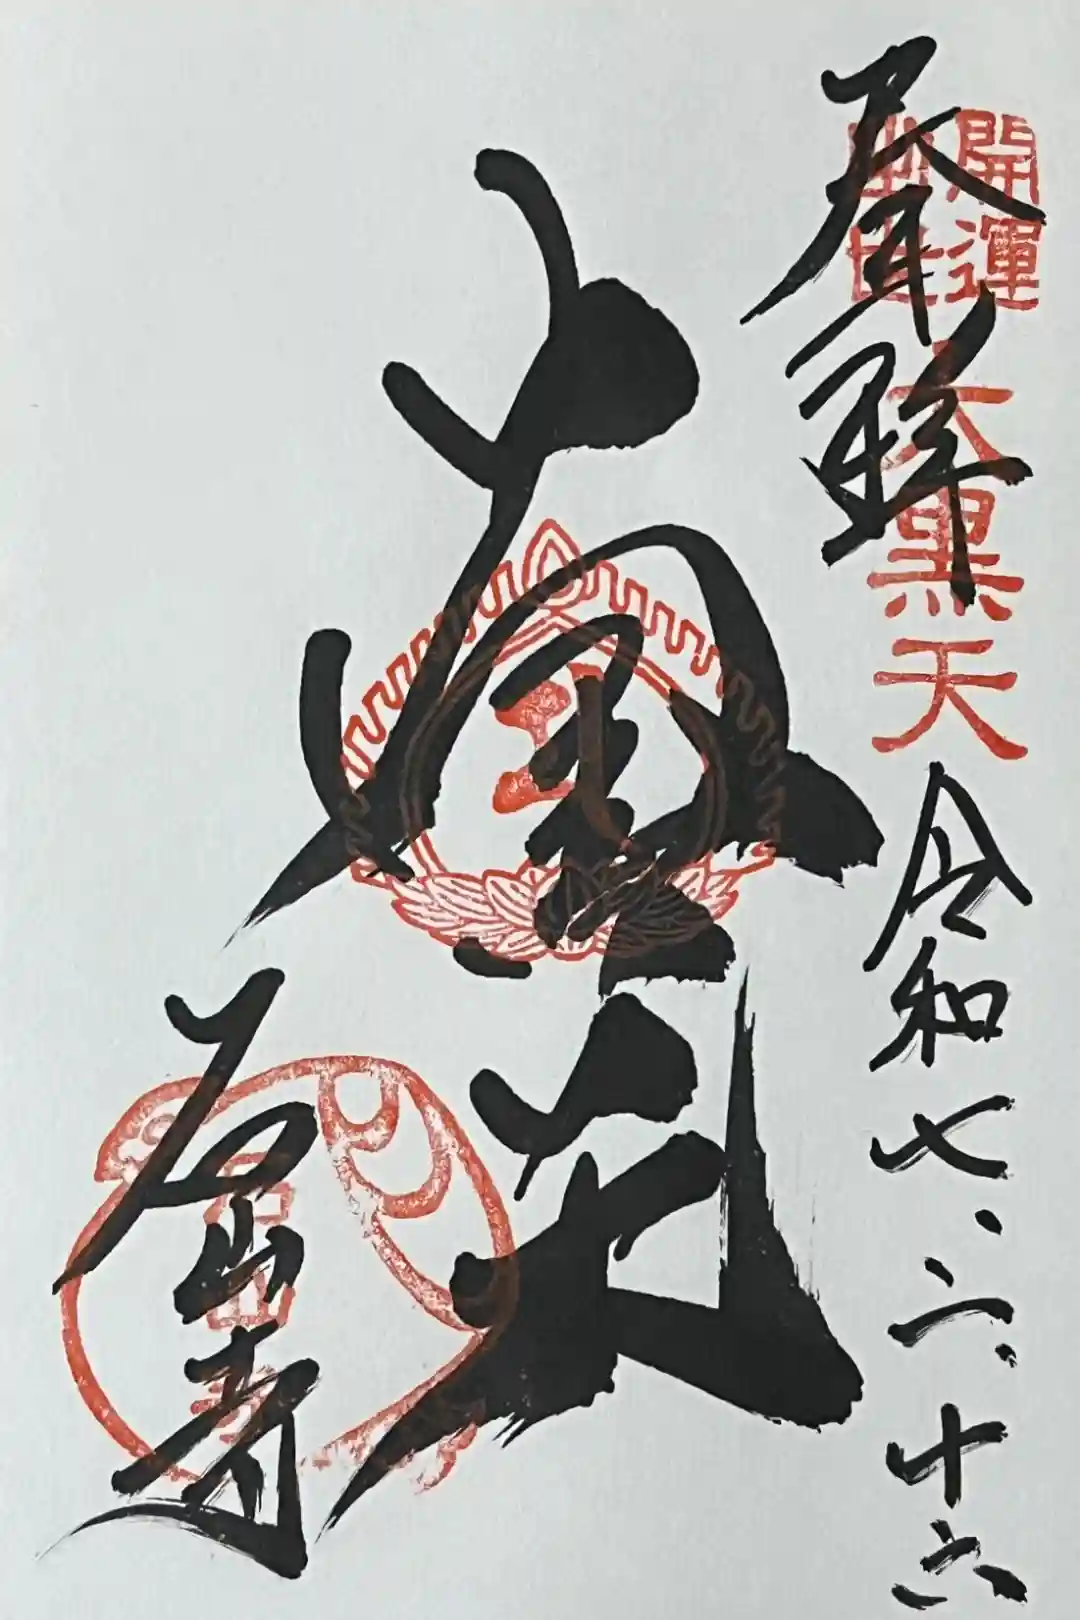 奉拝
開運
出世
大黒天
令和七、二、十六
大黒天
石山寺